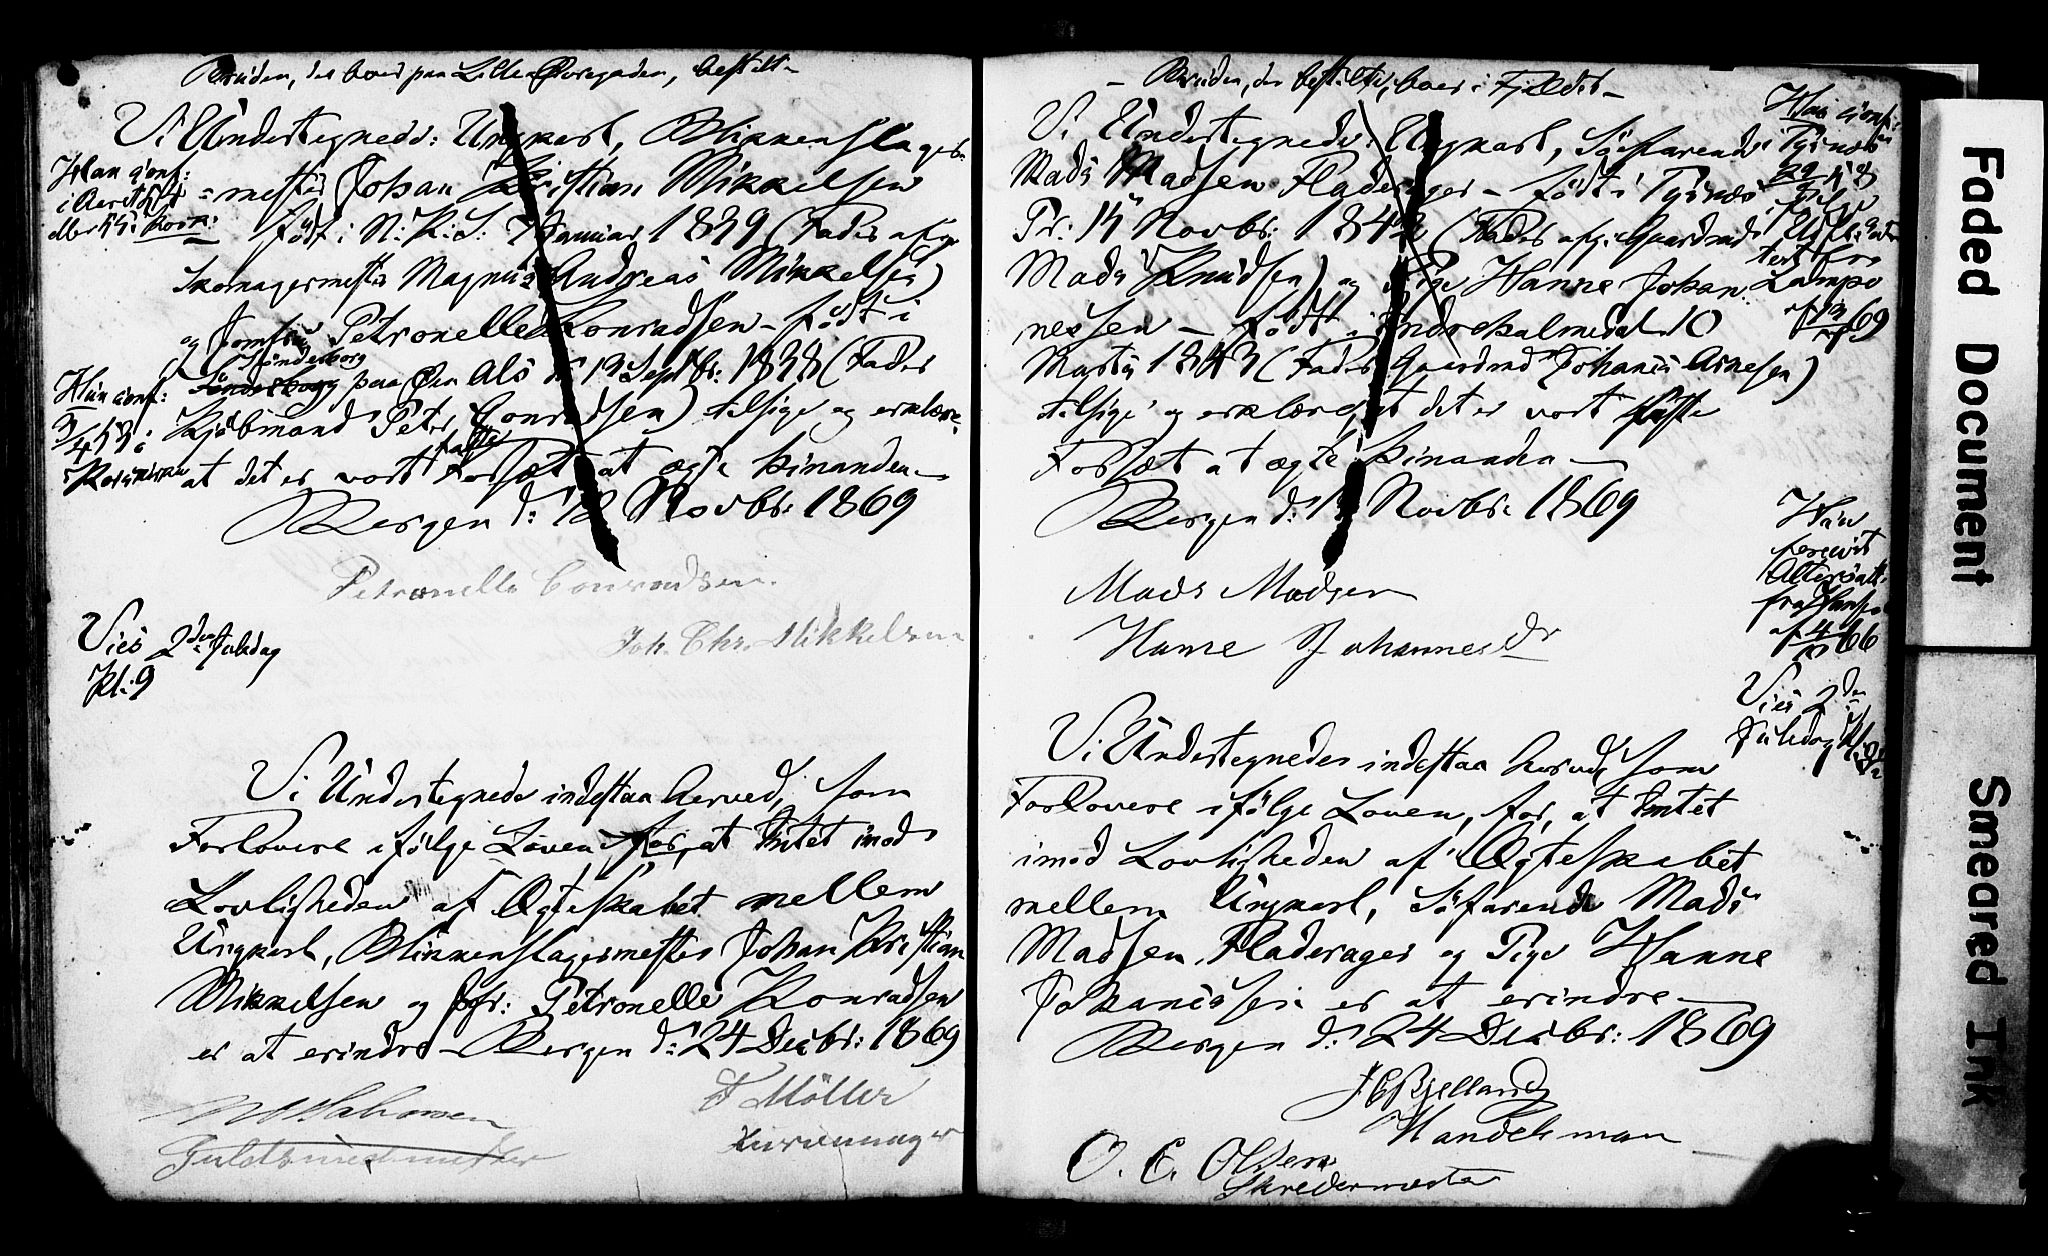 Bruden, der boer paa Lille Øvregaden, bestilt
Vi Undertegnede: Ungkarl, Blikkenslager-
=mester Johan Kristian Mikkelsen
Han conf:
i Aaret 54
eller 55 i Korsk:
født i N: K: S: 7 Januar 1839 (Fader afg:
Skomagermester Magnus Andreas Mikkelsen)
og Jomfru Petronelle Konradsen – født i
Sønderborg
Sønderborg paa Øen Als d: 19 Septbr: 1838 (Fader
Hun conf:
3/4 53 i
Korskirken
Kjøbmand Peter Conradsen) tilsige og erklære,
faste
at det er vort Forsæt at ægte hinanden
Bergen d: 12 Novbr: 1869
Petronelle Conradsen.
Joh. Chr. Mikkelsen
Vies 2den Juledag
Kl: 9
Vi Undertegnede indestaa herved, som
Forlovere ifølge Loven for, at Intet imod
Lovligheden af Ægteskabet mellem
Ungkarl, Blikkenslagermester Johan Kristian
Mikkelsen og Jfr: Petronelle Konradsen
er at erindre – Bergen d: 24 Decbr: 1869
Salomonsen
Guldsmedmester
F Möller
Kurvemager
– Bruden, der bestilte, boer i Fjeldet –
Vi Undertegnede: Ungkarl, Søfarende
Mads Madsen Fladerager – født i Tysnes
Pr: 15 Novbr: 1842 (Fader afg: Gaardmd
Mads Knudsen) og Pige Hanne Johan-
nessen – født i Indrehalmedal 10
Marts 1843 (Fader Gaardmd Johanes Arnesen)
tilsige og erklære, at det er vort faste
Forsæt at ægte hinanden –
Bergen d: 1 Novbr: 1869
Han conf:
i Tysnes
69
Mads Madsen
Hanne Johannesdr
Hun
forevist
Altersatt:
fra
af 66
Vies 2den
Juledag Kl: 9
Vi Undertegnede indestaa herved, som
Forlovere ifølge Loven, for, at Intet
imod Lovligheden af Ægteskabet
mellem Ungkarl, Søfarende Mads
Madsen Fladerager og Pige Hanne
Johanessen er at erindre –
Bergen d: 24 Decbr: 1869
Bjelland
Handelsman
O. E. Olsen
Skredermester
Faded Document
Smeared Ink